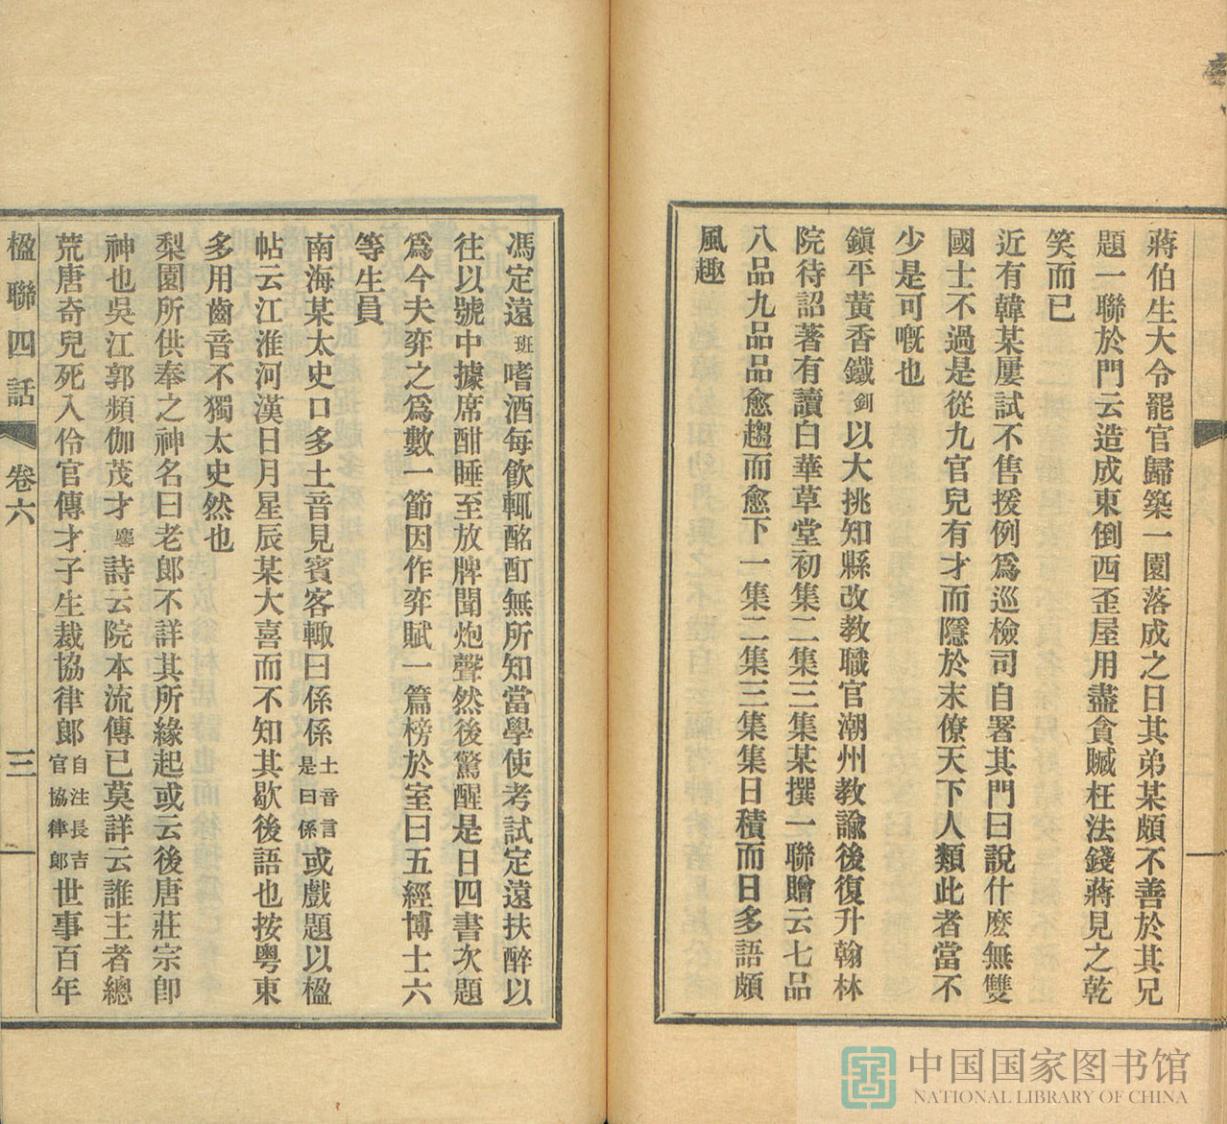 蔣伯生大令罷官歸築一園落成之日其弟某頗不善於其兄
題一聯於門云造成東倒西歪屋用盡貪贓枉法錢蔣見之乾
笑而已
近有韓某屢試不售援例爲巡檢司自署其門曰說什麽無雙
國士不過是從九官兒有才而隱於末僚天下人類此者當不
少是可嘅也
鎭平黄香鐵釗以大挑知縣改教職官潮州教諭後復升翰林
院待詔著有讀白華草堂初集二集三集某撰一聯贈云七品
八品九品品愈趨而愈下一集二集三集集日積而日多語頗
風趣
馮定遠班嗜酒每飲輒酩酊無所知當學使考試定遠扶醉以
往以號中據席酣睡至放牌聞炮聲然後驚醒是日四書次題
爲今夫弈之爲數一節因作弈賦一篇榜於室曰五經博士六
等生員
南海某太史口多土音見賓客輙曰係係土音言是曰係或戲題以楹
帖云江淮河漢日月星辰某大喜而不知其歇後語也按粤東
多用齒音不獨太史然也
梨園所供奉之神名曰老郎不詳其所緣起或云後唐莊宗卽
神也吳江郭頻伽茂才麐詩云院本流傳已莫詳云誰主者總
荒唐奇兒死入伶官傳才子生裁協律郎自注長吉官協律郎世事百年
楹聯四話 卷六 三
中国国家图书馆
NATIONAL LIBRARY OF CHINA